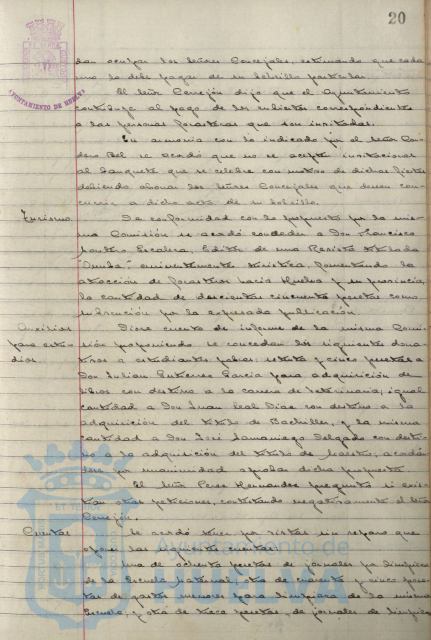 20
AYUNTAMIENTO DE HUELVA
dan ocupar los señores Concejales, estimando que cada
uno lo debe pagar de su bolsillo particular.
El señor Cerrejón dijo que el Ayuntamiento
contribuya al pago de los cubiertos correspondientes
a las personas forasteras que son invitadas.
En armonía con lo indicado por el señor
se acordó que no se acepte
al banquete que se celebre con motivo de dichas fiestas
debiendo abonar los señores Concejales que deseen con-
currir a dicho acto de su bolsillo.
Turismo. De conformidad con lo propuesto por la mis-
ma Comisión se acordó conceder a Don Francisco
Montero Escalera, Editor de una Revista titulada
"Onuba", eminentemente turística, fomentando la
atracción de forasteros hacia Huelva y su provincia,
la cantidad de doscientas cincuenta pesetas como
subvención por la expresada publicación.
Auxilios para estu- Dióse cuenta de informe de la misma Comi-
dios. sión proponiendo se concedan los siguientes dona-
tivos a estudiantes pobres: setenta y cinco pesetas a
Don Julian Gutierrez Garcia para adquisición de
libros con destino a la carrera de Veterinaria, igual
cantidad a Don Juan Leal Diaz con destino a la
adquisición del título de Bachiller, y la misma
cantidad a Don José Samaniego Delgado con desti-
no a la adquisición del título de Maestro, acordán-
dose por unanimidad aprobar dicha propuesta.
El señor Perez Hernandez preguntó si exis-
tían otras peticiones, contestando negativamente el señor
Cerrejón.
Cuentas Se acordó tener por vistas sin reparo que
oponer las siguientes cuentas:
Una de ochenta pesetas de jornales por limpieza
de la Escuela Maternal, otra de cuarenta y cinco pese-
tas de gastos menores para limpieza de la misma
Escuela, y otra de trece pesetas, de jornales de limpieza
Ayuntamiento de